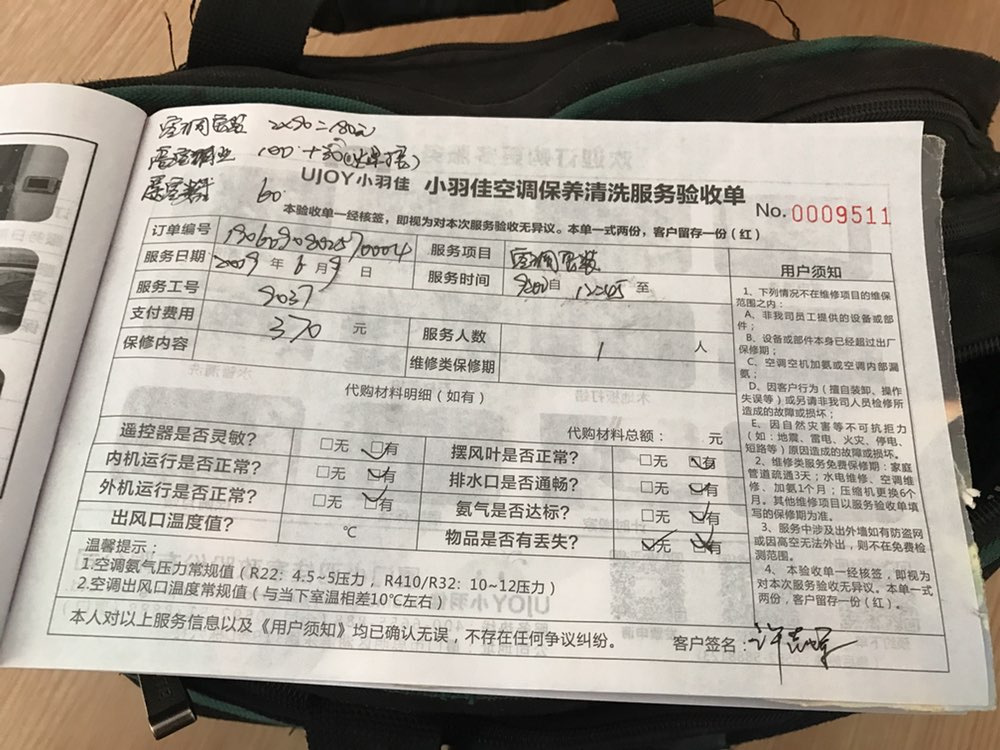 空调宫装 2x90=180元
100+30
60
UJOY小羽佳 小羽佳空调保养清洗服务验收单
No. 0009511
本验收单一经核签，即视为对本次服务验收无异议。本单一式两份，客户留存一份（红）
订单编号
服务项目 空调
服务日期 2009 年 6 月 9 日
服务时间 9:00 自 12:45 至
服务工号 9037
支付费用 370 元
服务人数 1 人
保修内容
维修类保修期
代购材料明细（如有）
代购材料总额： 元
遥控器是否灵敏？ □无 □有
摆风叶是否正常？ □无 □有
内机运行是否正常？ □无 □有
排水口是否通畅？ □无 □有
外机运行是否正常？ □无 □有
氨气是否达标？ □无 □有
出风口温度值？ ℃
物品是否有丢失？ □无 □有
温馨提示：
1.空调氨气压力常规值（R22：4.5~5压力，R410/R32：10~12压力）
2.空调出风口温度常规值（与当下室温相差10℃左右）
本人对以上服务信息以及《用户须知》均已确认无误，不存在任何争议纠纷。
客户签名：许志
用户须知
1、下列情况不在维修项目的维保
范围之内：
A、非我司员工提供的设备或部
件；
B、设备或部件本身已经超过出厂
保修期；
C、空调空机加氨或空调内部漏
氨；
D、因客户行为（擅自装卸、操作
失误等）或另请非我司人员检修所
造成的故障或损坏；
E、因自然灾害等不可抗拒力
（如：地震、雷电、火灾、停电、
短路等）原因造成的故障或损坏。
2、维修类服务免费保修期：家庭
管道疏通3天；水电维修、空调维
修、加氨1个月；压缩机更换6个
月。其他维修项目以服务验收单填
写的保修期为准。
3、服务中涉及出外墙如有防盗网
或因高空无法外出，则不在免费检
测范围。
4、本验收单一经核签，即视为
对本次服务验收无异议。本单一式
两份，客户留存一份（红）。